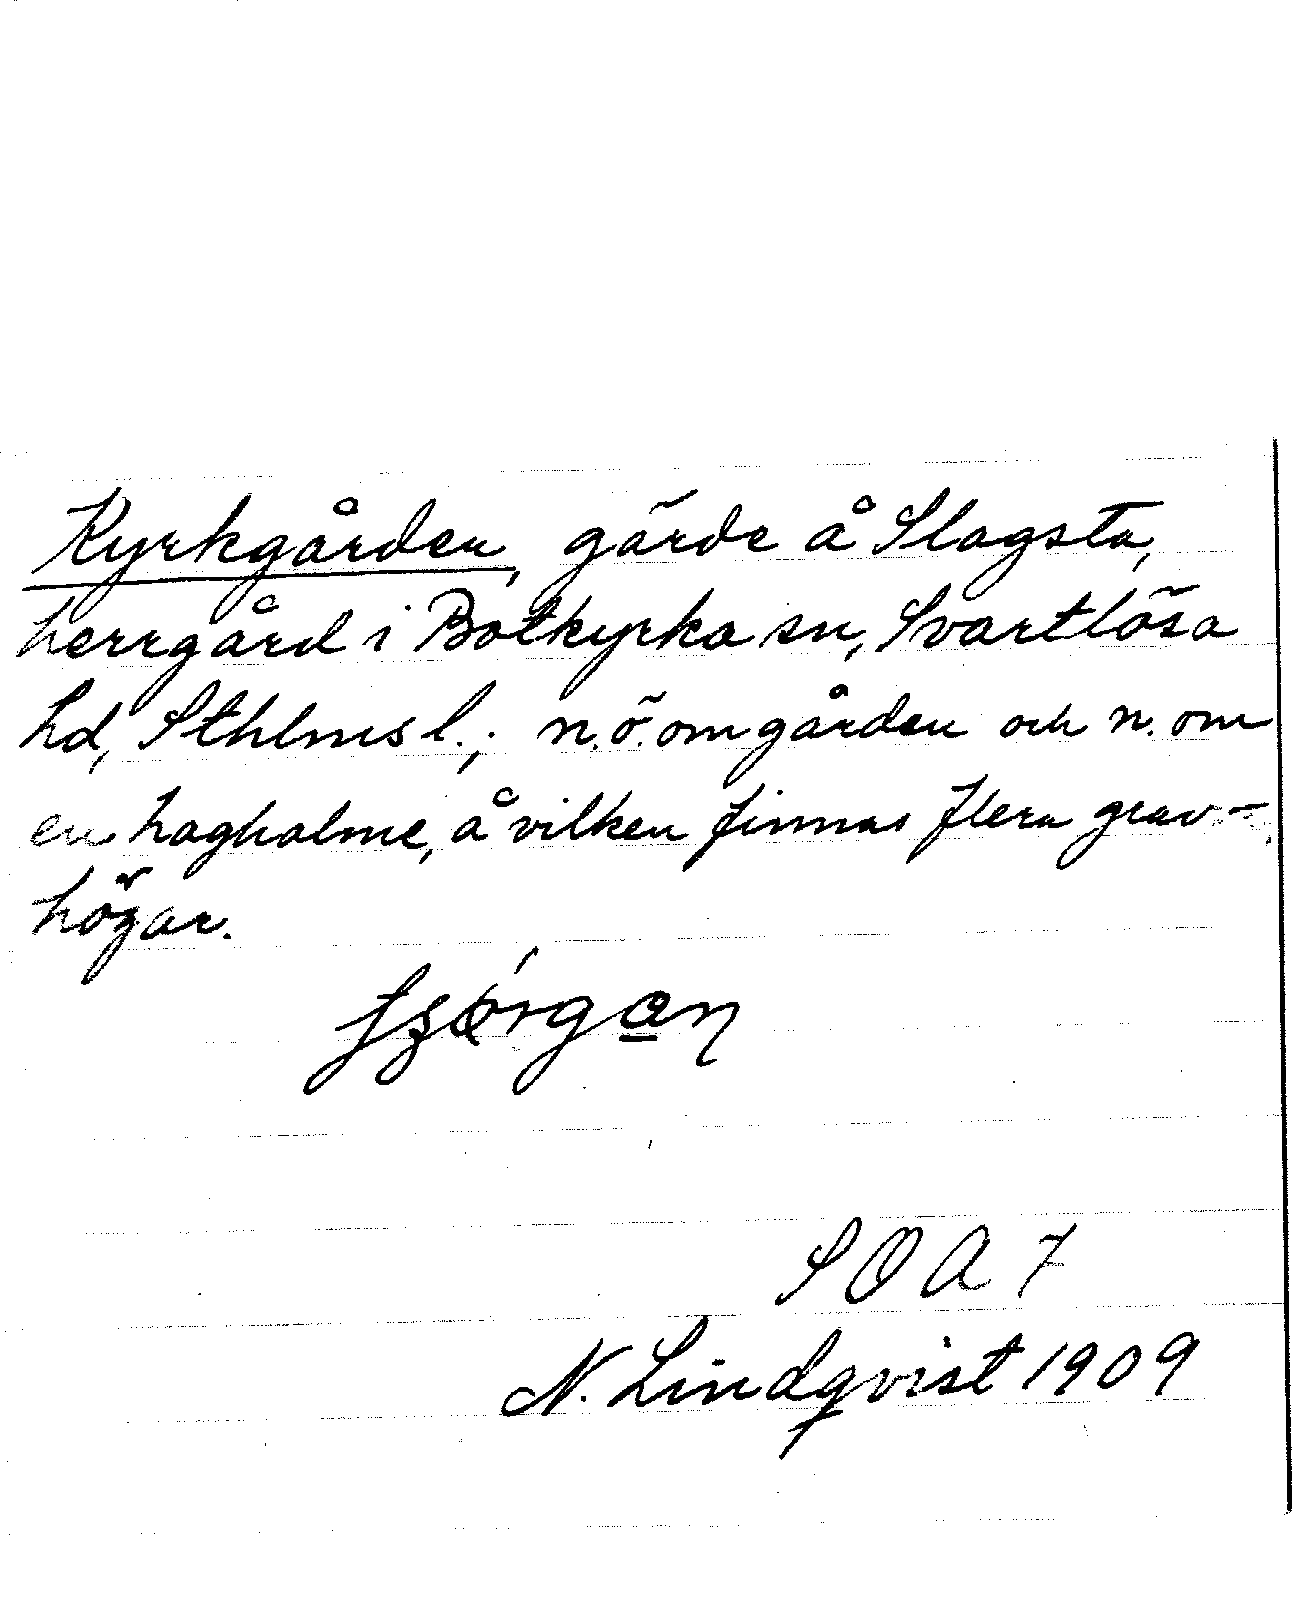 Kyrkgården, gärde å Slagsta,
herrgård i Botkyrka sn, Svartlösa
hd, Sthlms l.; n.ö. om gården och n. om
en hagholme, å vilken finnas flera grav-
högar.
SOA 7
N. Lindqvist 1909